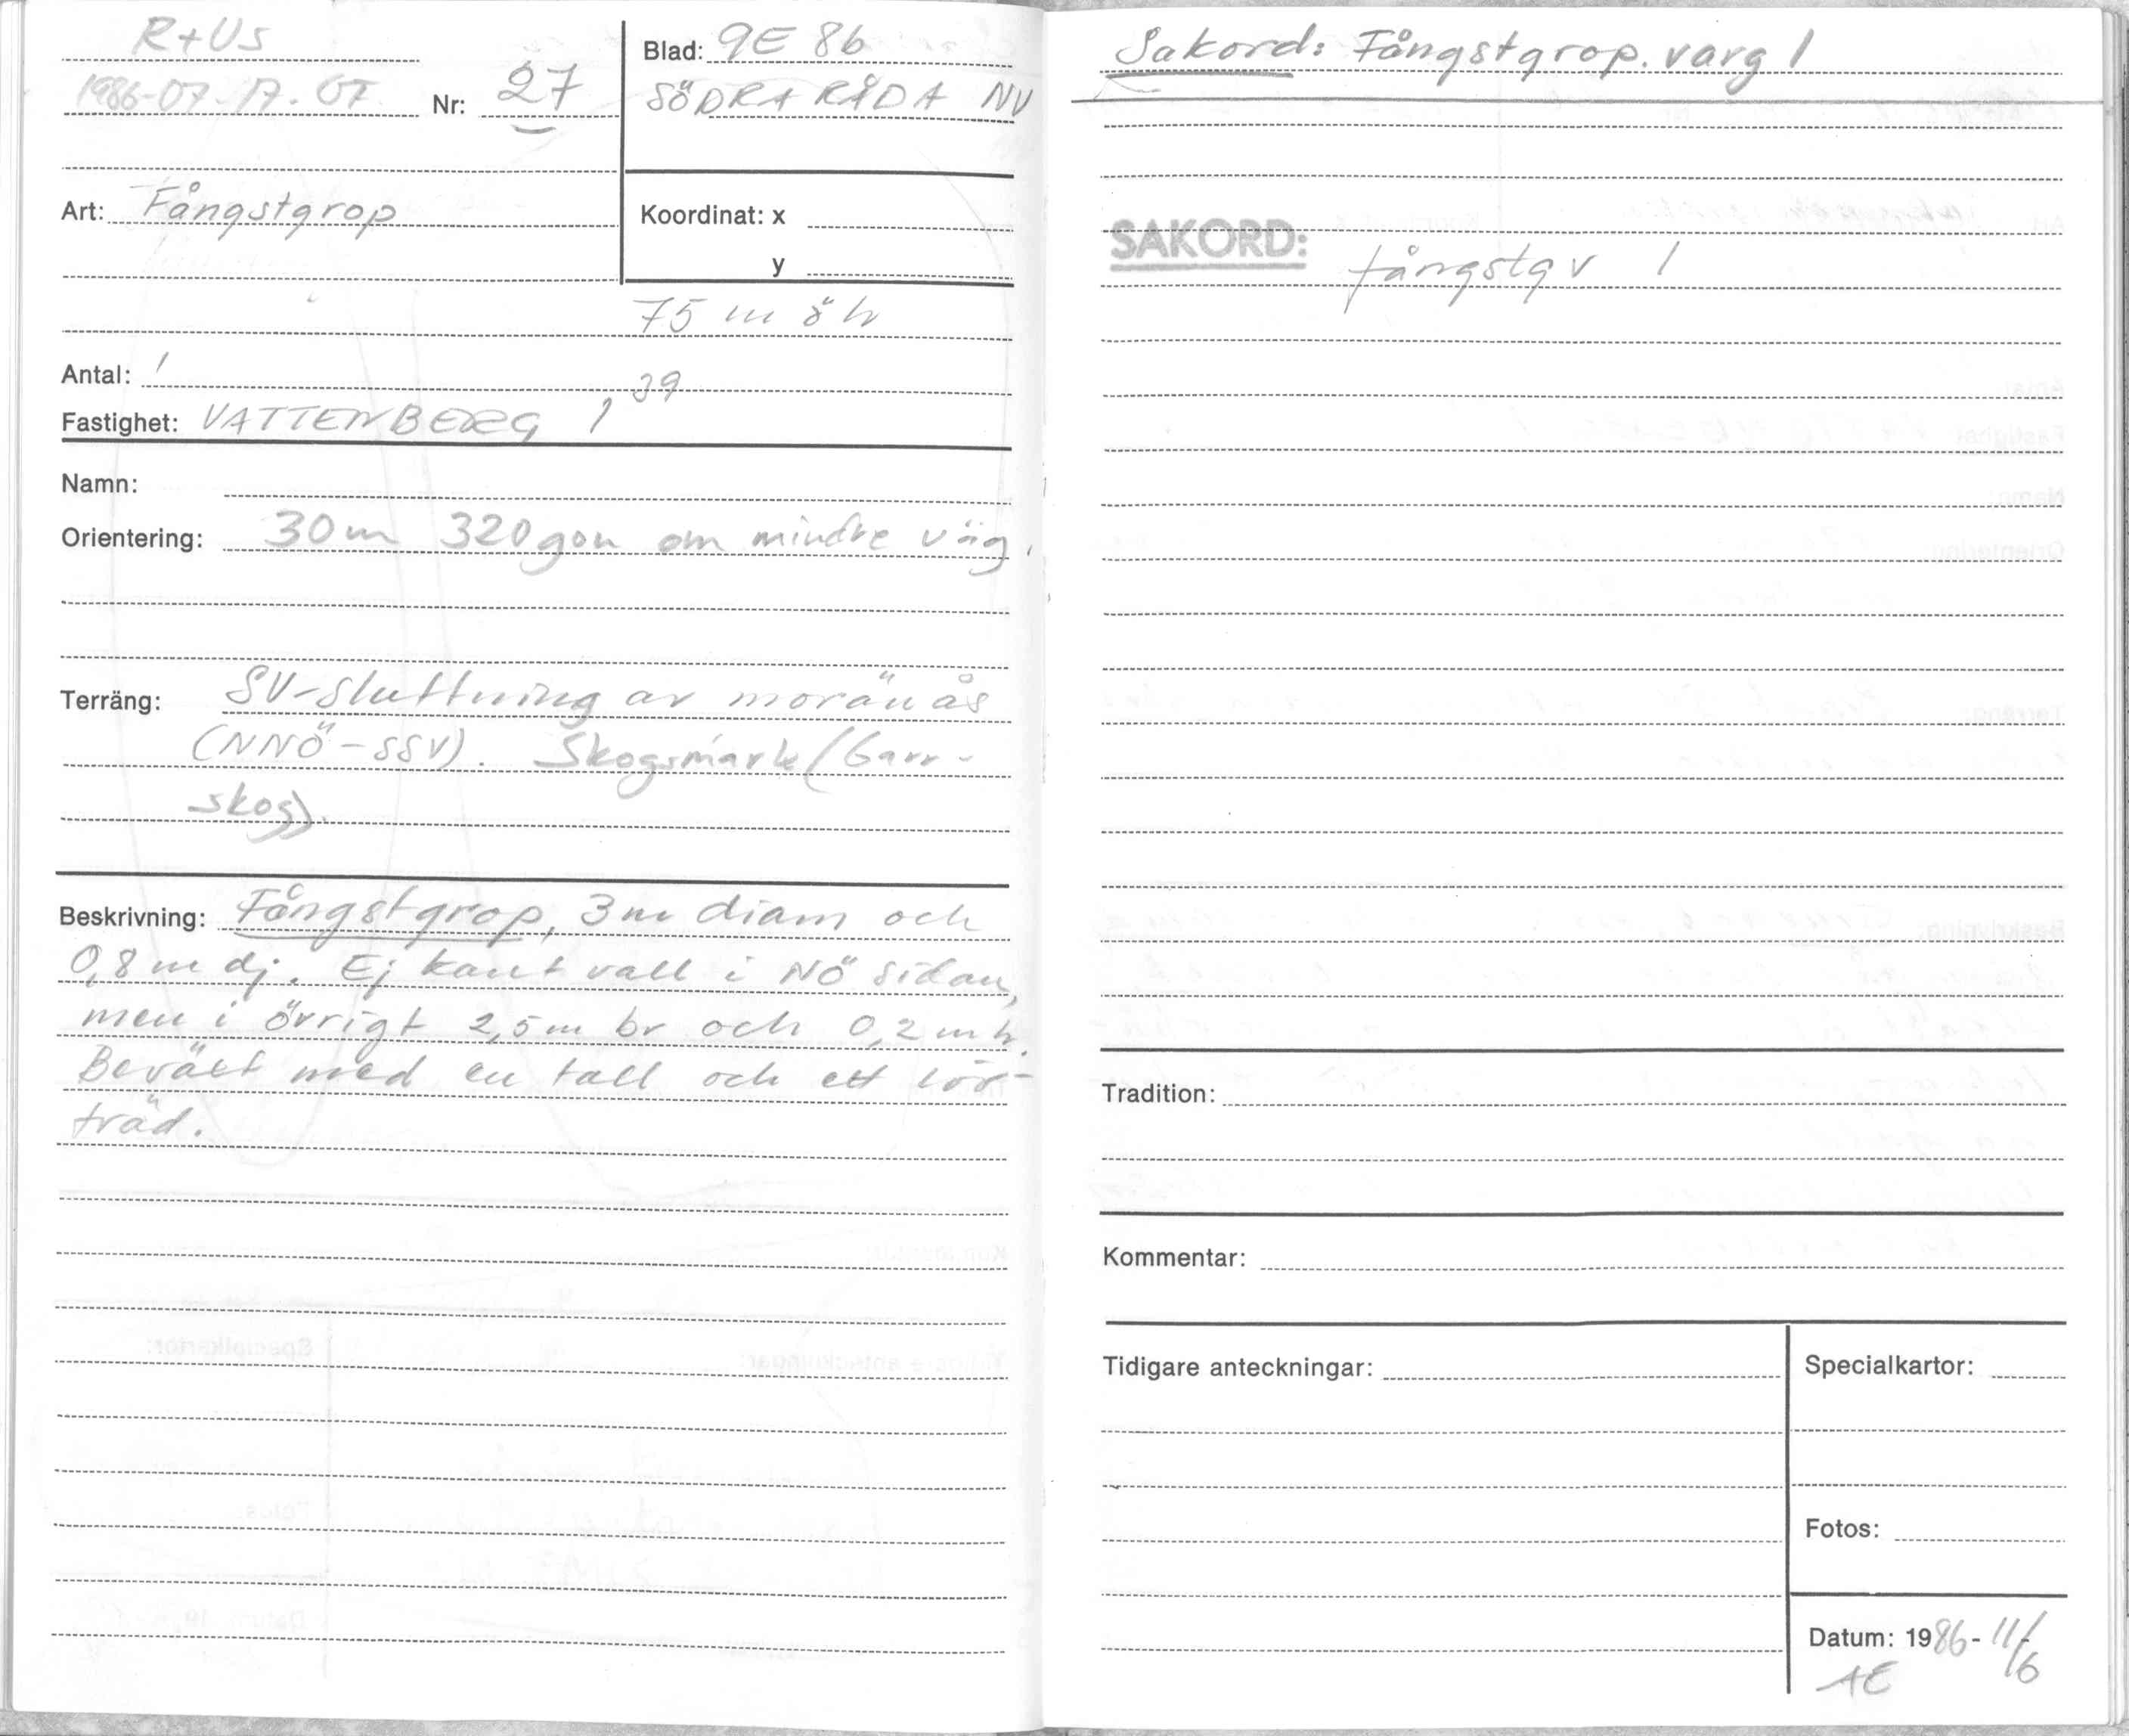 R+US
1986-07-17. OT Nr: 27
Blad: 9E 86
SÖDRA RÅDA NV
Art: Fångstgrop
Koordinat: x
y
75 m ö h
Antal: 1
Fastighet: VATTENBERG 1 39
Namn:
Orientering: 30m 320gon om mindre väg.
Terräng: SV-sluttning av moränås
(NNÖ-SSV). Skogsmark (barr-
skog).
Beskrivning: Fångstgrop, 3m diam och
0,8 m dj. Ej kantvall i NÖ sidan,
men i övrigt 2,5m br och 0,2 m h.
Beväxt med en tall och ett löv-
träd.
Sakord: Fångstgrop. varg 1
SAKORD:
fångstgv 1
Tradition:
Kommentar:
Tidigare anteckningar:
Specialkartor:
Fotos:
Datum: 1986-11/6
AE